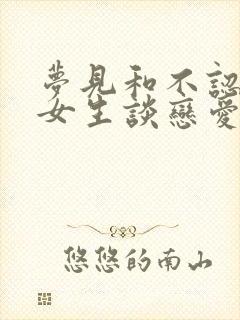 夢見和不認
女生談戀愛
悠悠的南山